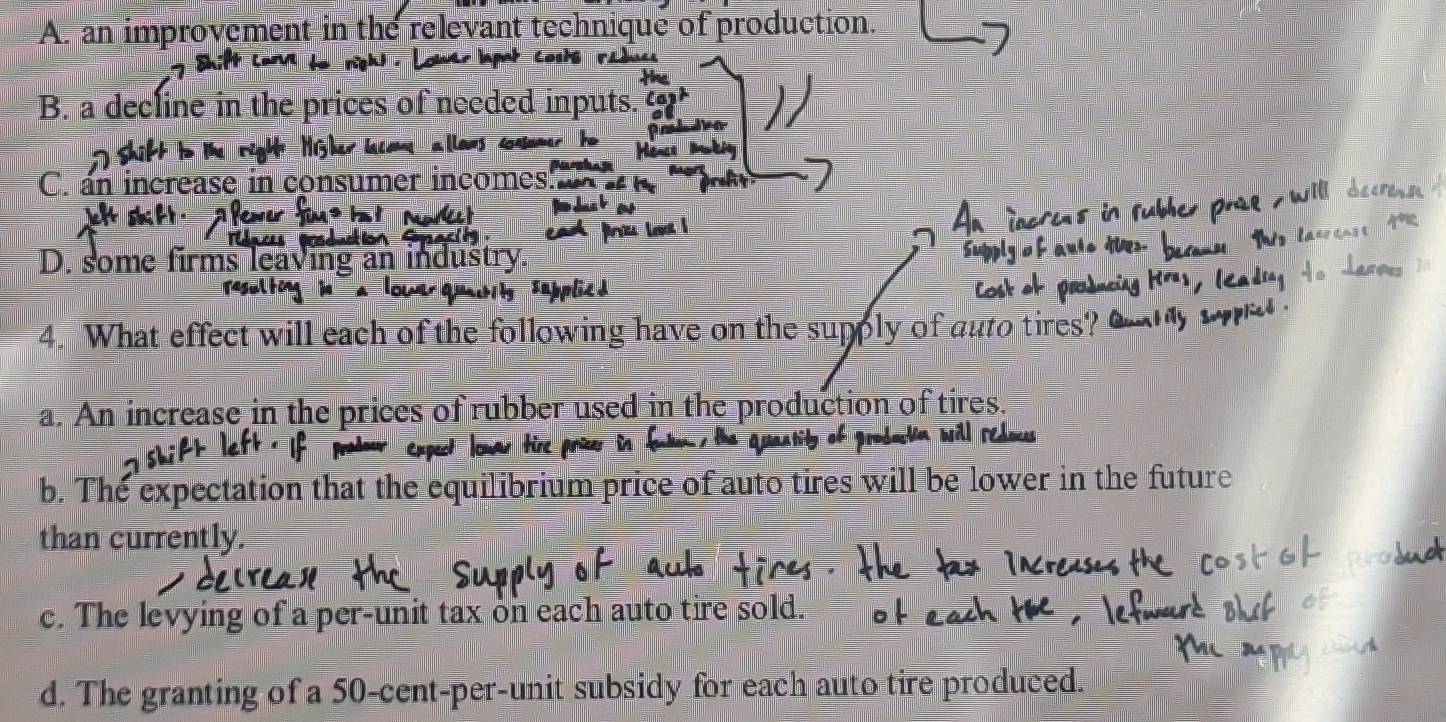 A. an improvement in the relevant technique of production.
shift curve to right. Lower input costs reduces
the
B. a decline in the prices of needed inputs. cost
of
shift to the right Higher allows consumer to
Hence making
C. an increase in consumer incomes. more of the more profit.
left shift. Fewer market product at
reduces production capacity. each price level
D. some firms leaving an industry.
resulting in a lower quantity supplied
An increas in rubber price, will decrease
supply of auto tires because this increase the
cost of producing tires, leading to
4. What effect will each of the following have on the supply of auto tires? Quantity supplied.
a. An increase in the prices of rubber used in the production of tires.
shift left. If expect lower tire prices in, the quantity of production will reduces
b. The expectation that the equilibrium price of auto tires will be lower in the future
than currently.
decrease the supply of auto tires. the tax increases the cost of product
c. The levying of a per-unit tax on each auto tire sold. of each, lefward
the supply
d. The granting of a 50-cent-per-unit subsidy for each auto tire produced.